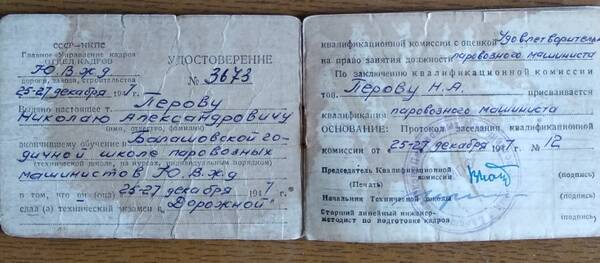 СССР—НКПС
Главное Управление кадров
ОТДЕЛ КАДРОВ
Ю.В.ж.д.
дорога, завода, строительства
25-27 декабря 1947 г.
УДОСТОВЕРЕНИЕ
№ 3673
Выдано настоящее т. Перову
Николаю Александровичу
(имя, отчество, фамилия)
окончившему обучение в Балашовской го-
дичной школе паровозных
(технической школе, на курсах, индивидуальным порядком)
машинистов Ю.В.ж.д
в том, что он (она) 25-27 декабря 1947 г.
сдал (а) технический экзамен в Дорожной
квалификационной комиссии с оценкой Удовлетворитель
на право занятия должности паровозного машиниста
По заключению квалификационной комиссии
тов. Перову Н.А. присваивается
квалификация паровозного машиниста
ОСНОВАНИЕ: Протокол заседания квалификационной
комиссии от 25-27 декабря 1947 г. № 12
Председатель Квалификационной
комиссии (подпись)
(Печать)
Начальник Технической школы (подпись)
Старший линейный инженер-
методист по подготовке кадров (подпись)